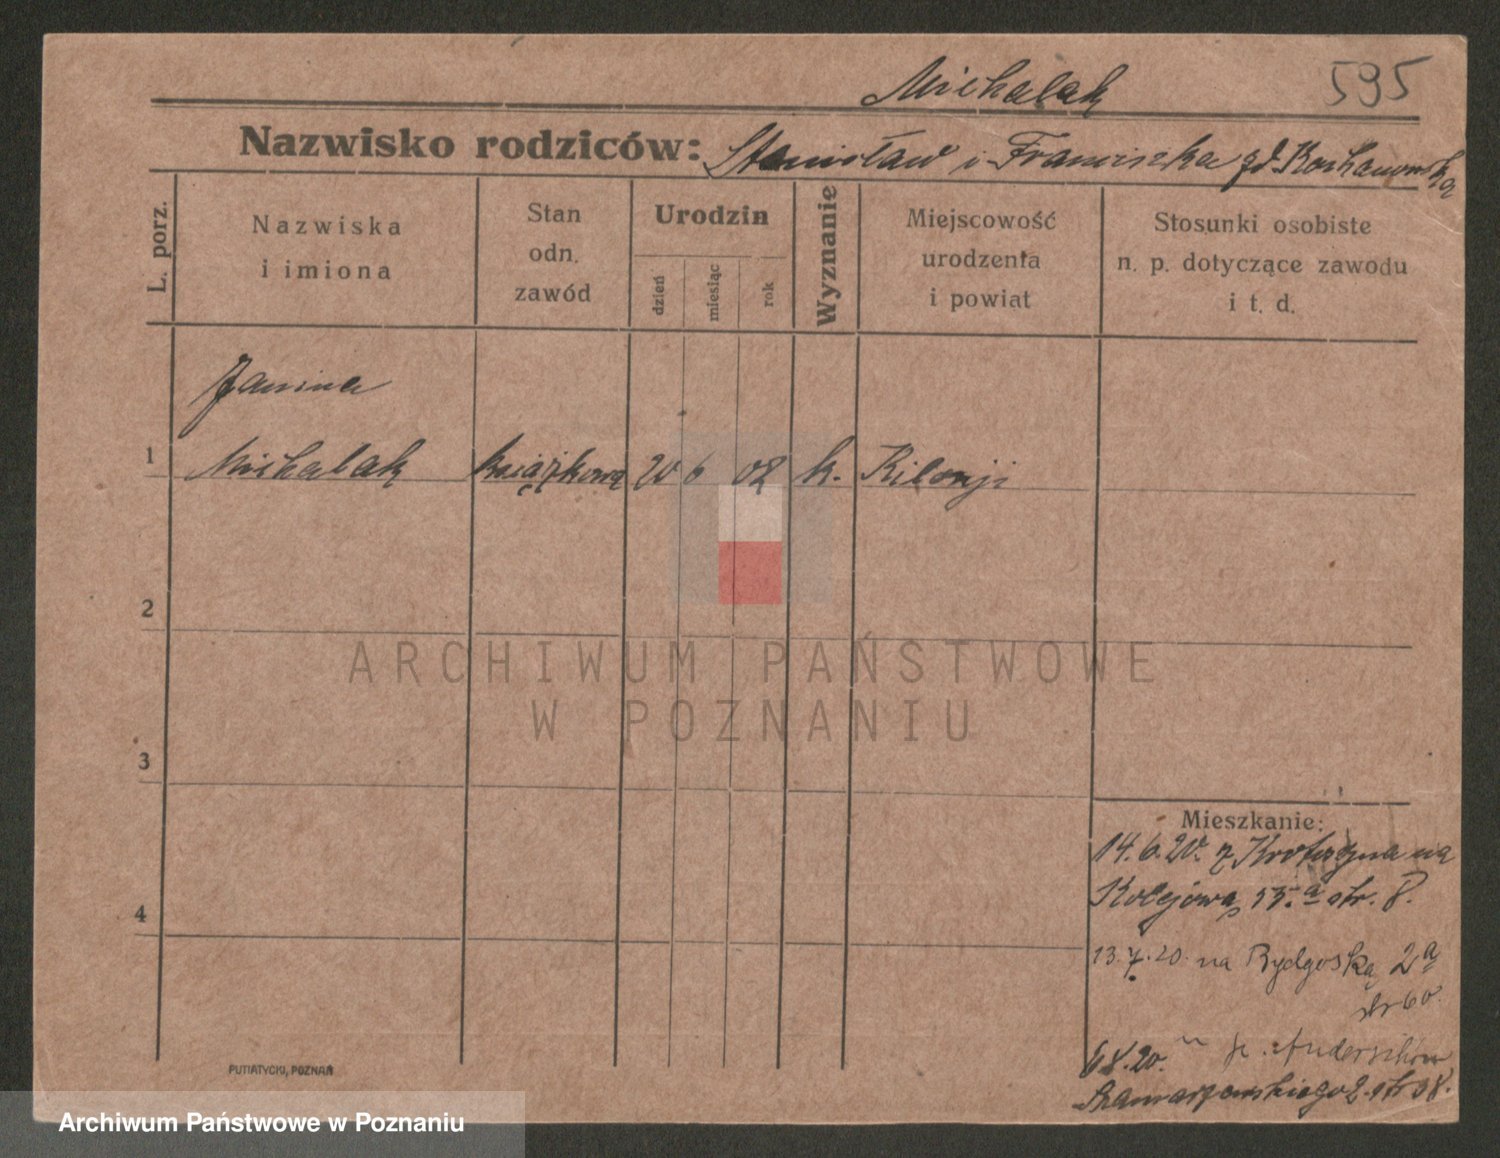 Michalak
595
Nazwisko rodziców: Stanisław i Franciszka zd. Kochanowska
L. porz.
Nazwiska
i imiona
Stan
odn.
zawód
Urodzin
dzień
miesiąc
rok
Wyznanie
Miejscowość
urodzenia
i powiat
Stosunki osobiste
n. p. dotyczące zawodu
i t. d.
Janina
1 Michalak 20 6 02 k.
2
3
4
Mieszkanie:
14.6.20. z Krotoszyna na
Kolejową 15.a str. 8.
13.7.20. na Bydgoską 2a
str 60.
6 8.20. "
2. str 38.
PUTIATYCKI, POZNAŃ
ARCHIWUM PAŃSTWOWE
W POZNANIU
Archiwum Państwowe w Poznaniu